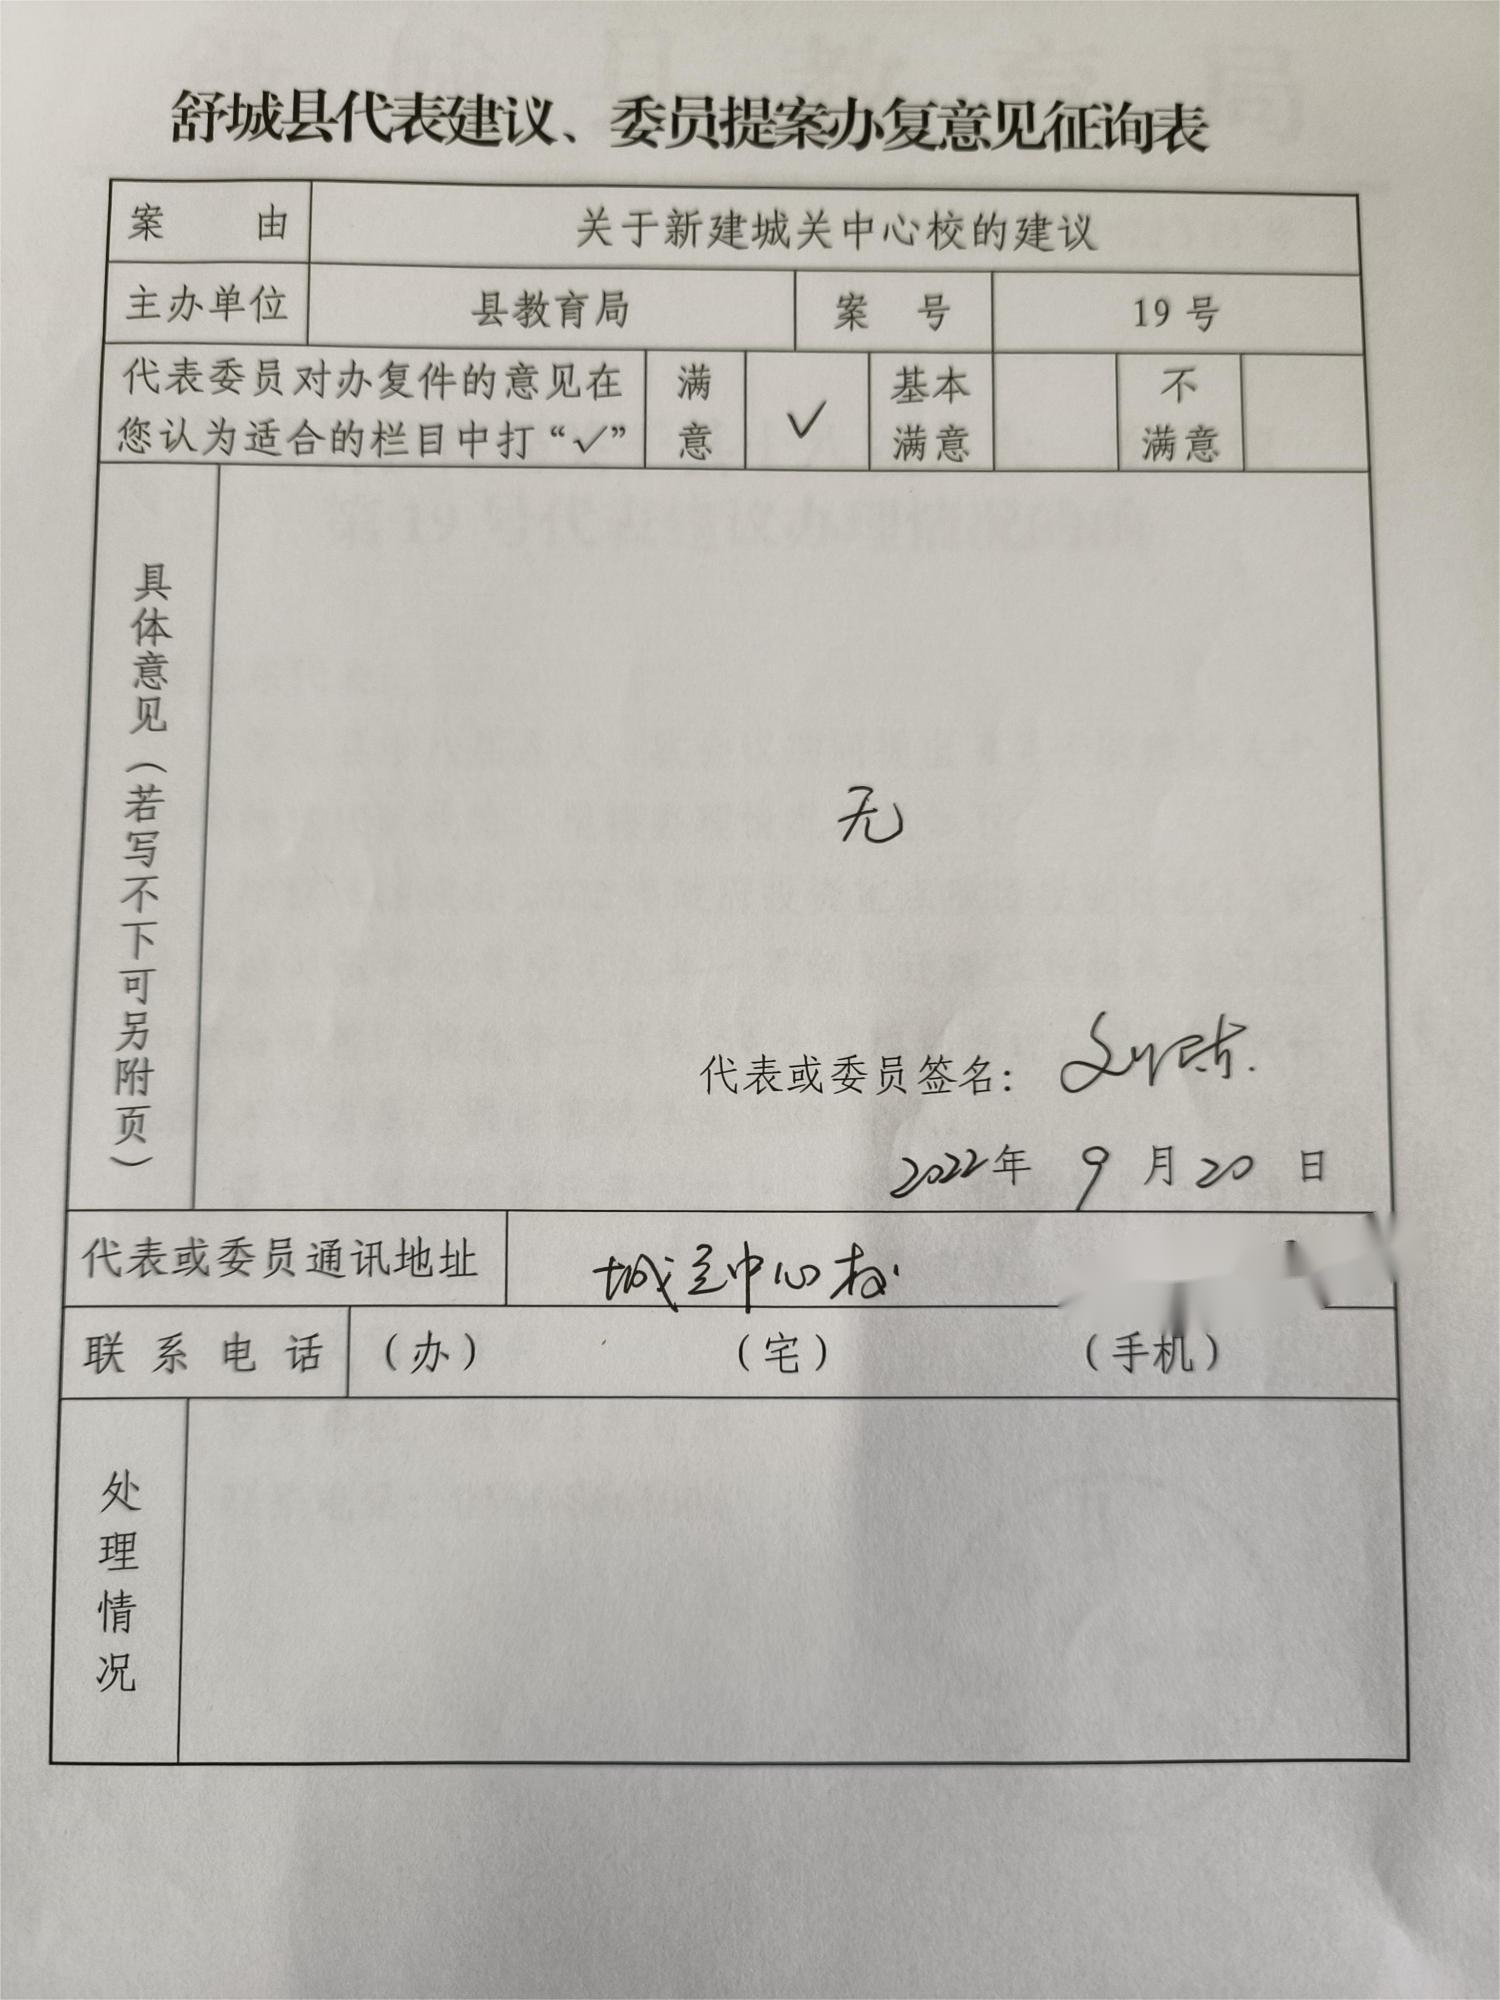 舒城县代表建议、委员提案办复意见征询表
案 由 关于新建城关中心校的建议
主办单位 县教育局 案 号 19 号
代表委员对办复件的意见在您认为适合的栏目中打“✓” 满意 ✓ 基本满意 不满意
具体意见（若写不下可另附页）
无
代表或委员签名：
2022年 9 月 20 日
代表或委员通讯地址 城关中心校
联系电话 （办） （宅） （手机）
处理情况